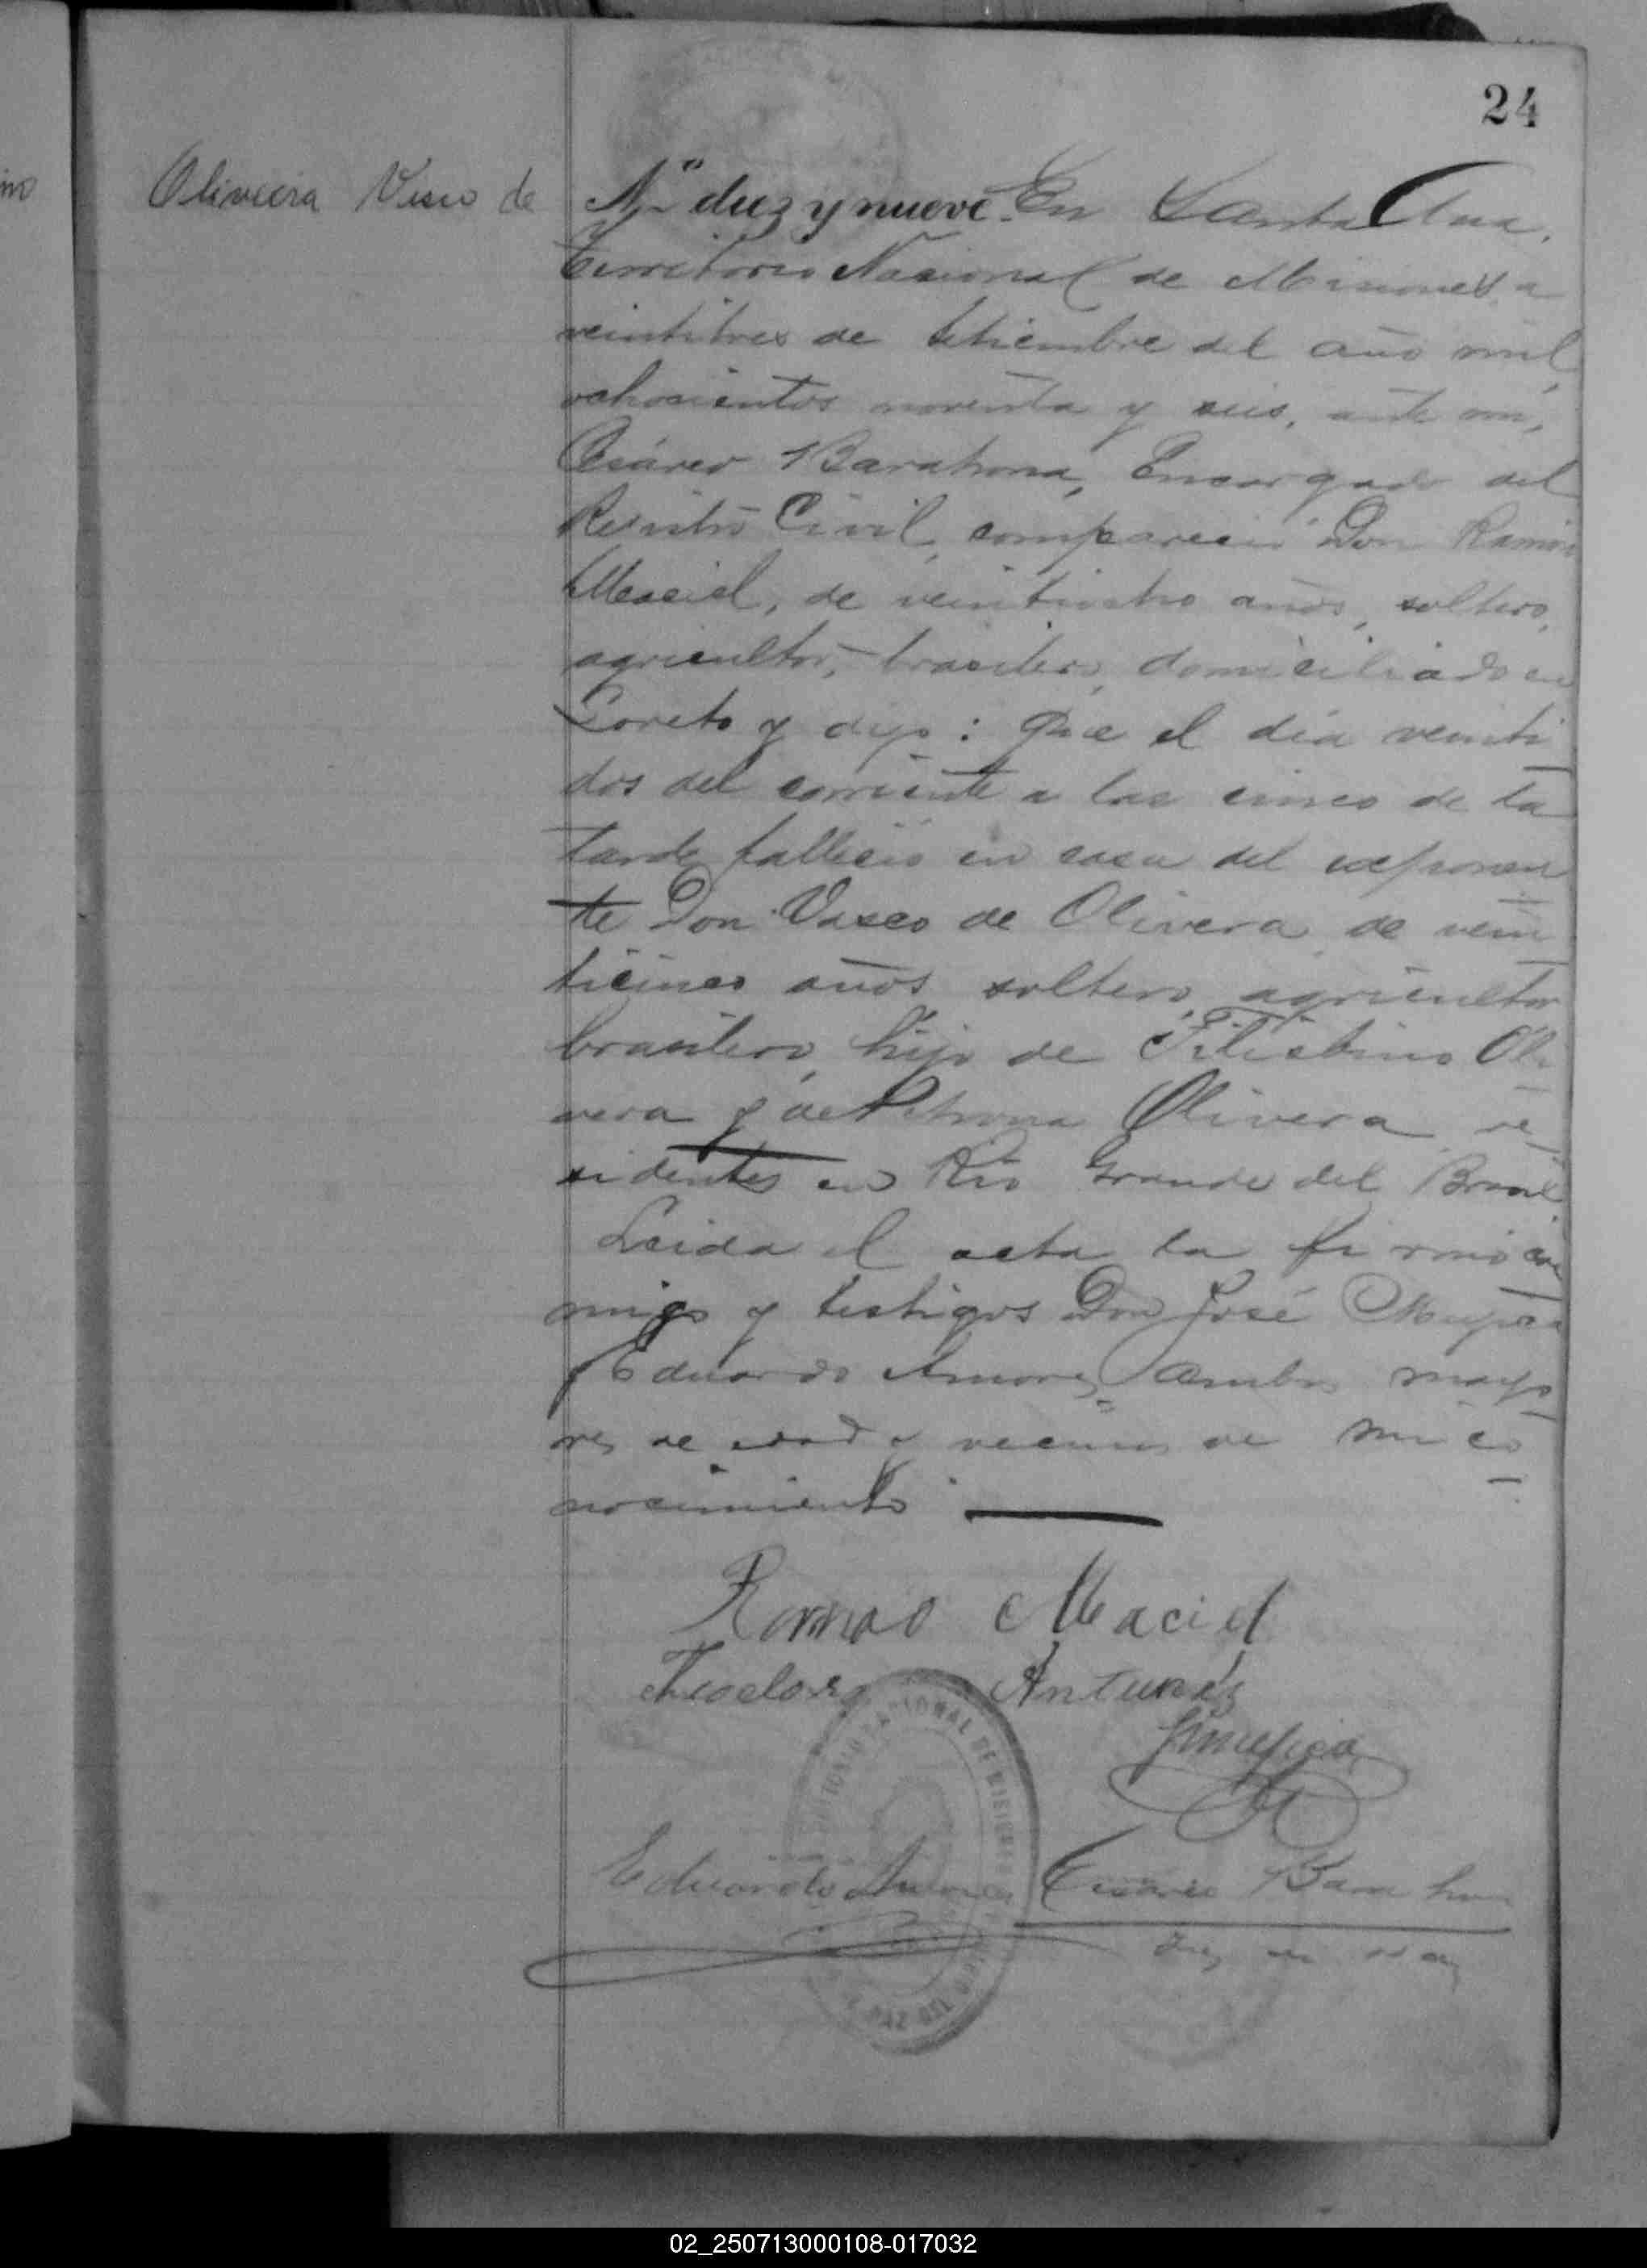 24
Oliveira Visco de
Nº diez y nueve. En Santa Ana,
Territorio Nacional de Misiones, a
veintitres de setiembre del año mil
ochocientos noventa y seis, ante mi,
Cesáreo Barahona, Encargado del
Registro Civil, compareció Don Ramón
Maciel, de veintiocho años, soltero,
agricultor, brasilero, domiciliado en
Loreto y dijo: Que el día veinti
dos del corriente a las cinco de la
tarde falleció en casa del exponen
te Don Vasco de Olivera de vein
ticinco años soltero, agricultor
brasilero, hijo de Filisbino Oli
vera y de Petrona Olivera re
sidentes en Rio Grande del Brasil
Leida el acta la firmó con
migo y testigos Don José Mujica
y Eduardo Amores ambos mayo
res de edad y vecinos de mi co
nocimiento
Romao Maciel
Theodoro Antunes
JMujica
Eduardo Amores Cesáreo Barahona
Juez de Paz
TERRITORIO NACIONAL DE MISIONES
PAZ DEL
02_250713000108-017032